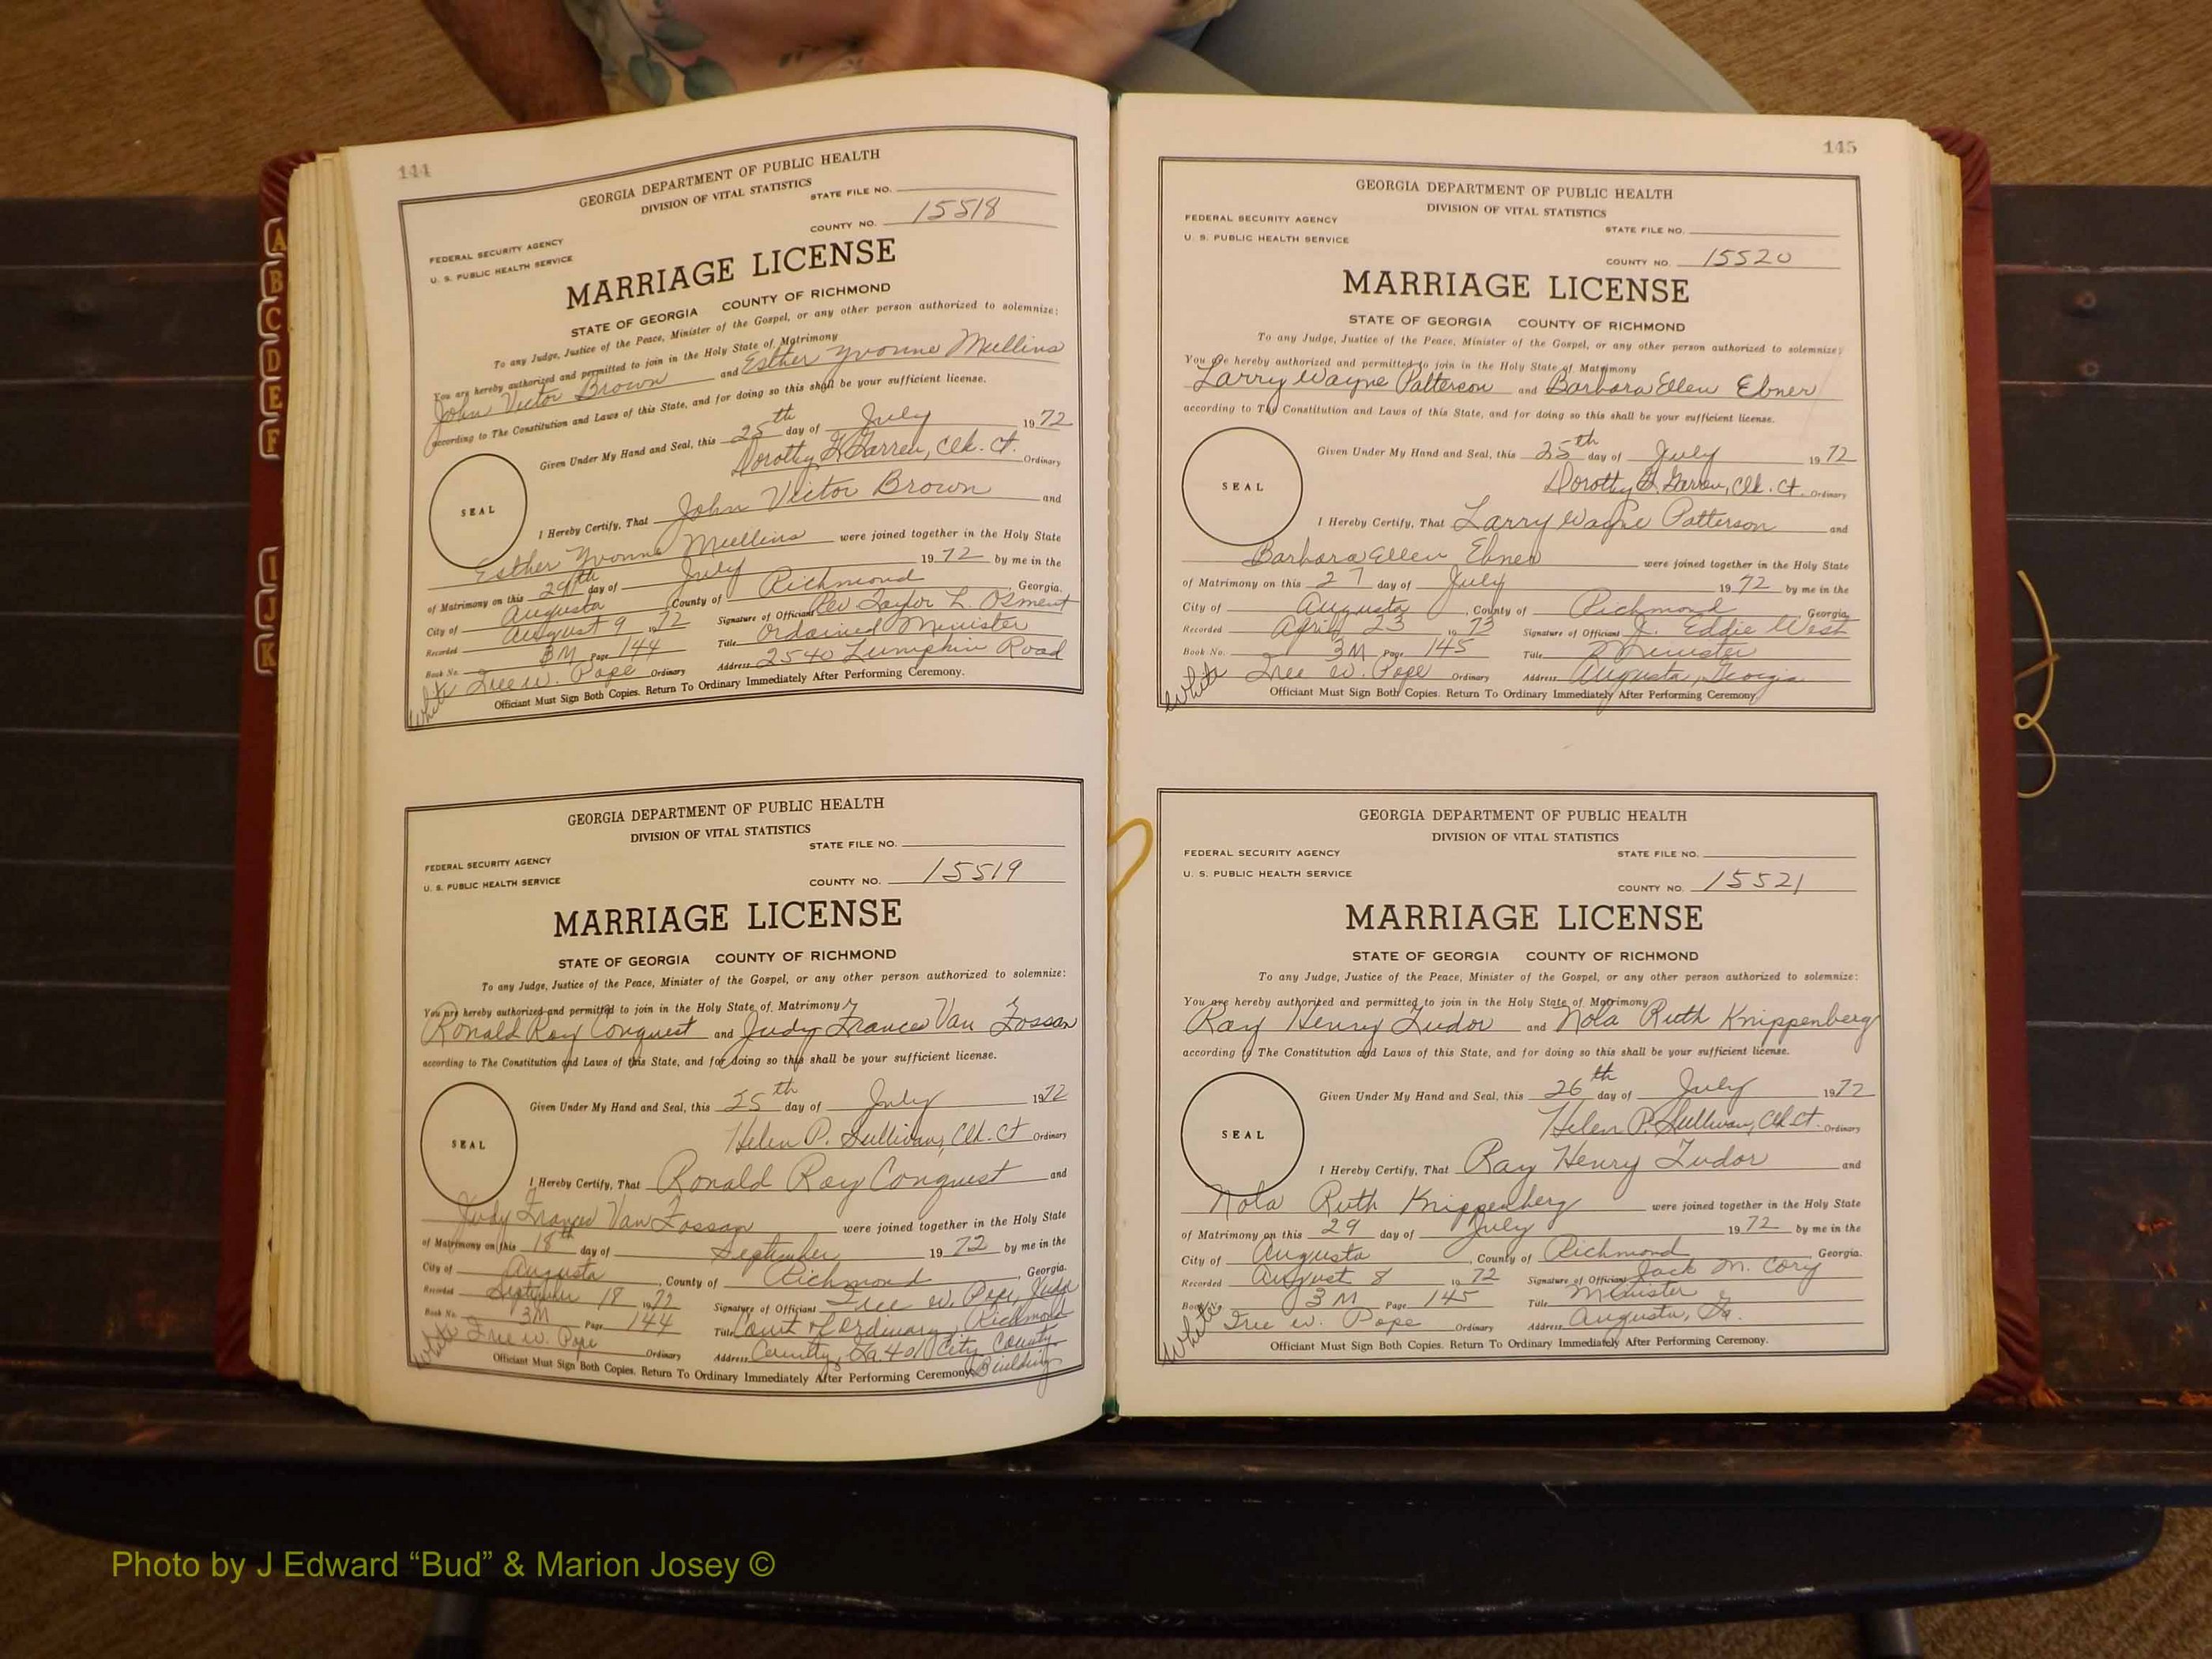 144
GEORGIA DEPARTMENT OF PUBLIC HEALTH
DIVISION OF VITAL STATISTICS
STATE FILE NO.
FEDERAL SECURITY AGENCY
U. S. PUBLIC HEALTH SERVICE
COUNTY NO. 15518
MARRIAGE LICENSE
STATE OF GEORGIA COUNTY OF RICHMOND
To any Judge, Justice of the Peace, Minister of the Gospel, or any other person authorized to solemnize:
You are hereby authorized and permitted to join in the Holy State of Matrimony
John Victor Brown and Esther Yvonne Mullins
according to The Constitution and Laws of this State, and for doing so this shall be your sufficient license.
Given Under My Hand and Seal, this 25th day of July 1972
Dorothy G. Garren, Clk. Ct. Ordinary
SEAL
I Hereby Certify, That John Victor Brown and
Esther Yvonne Mullins were joined together in the Holy State
of Matrimony on this 29th day of July 1972 by me in the
City of Augusta County of Richmond, Georgia.
Recorded August 9 1972 Signature of Officiant Rev Taylor L. Osment
Book No. 3M Page 144 Title Ordained Minister
White Tree W. Pope Ordinary Address 2540 Lumpkin Road
Officiant Must Sign Both Copies. Return To Ordinary Immediately After Performing Ceremony.
GEORGIA DEPARTMENT OF PUBLIC HEALTH
DIVISION OF VITAL STATISTICS
STATE FILE NO.
FEDERAL SECURITY AGENCY
U. S. PUBLIC HEALTH SERVICE
COUNTY NO. 15519
MARRIAGE LICENSE
STATE OF GEORGIA COUNTY OF RICHMOND
To any Judge, Justice of the Peace, Minister of the Gospel, or any other person authorized to solemnize:
You are hereby authorized and permitted to join in the Holy State of Matrimony
Ronald Roy Conquest and Judy Frances Van Fossan
according to The Constitution and Laws of this State, and for doing so this shall be your sufficient license.
Given Under My Hand and Seal, this 25th day of July 1972
Helen P. Sullivan, Clk. Ct Ordinary
SEAL
I Hereby Certify, That Ronald Roy Conquest and
Judy Frances Van Fossan were joined together in the Holy State
of Matrimony on this 18th day of September 1972 by me in the
City of Augusta, County of Richmond, Georgia.
Recorded September 18 1972 Signature of Officiant Tree W. Pope, Judge
Book No. 3M Page 144 Title Court of Ordinary, Richmond
White Tree W. Pope Ordinary Address County, Ga. 401 City County
Building
Officiant Must Sign Both Copies. Return To Ordinary Immediately After Performing Ceremony.
145
GEORGIA DEPARTMENT OF PUBLIC HEALTH
DIVISION OF VITAL STATISTICS
FEDERAL SECURITY AGENCY
STATE FILE NO.
U. S. PUBLIC HEALTH SERVICE
COUNTY NO. 15520
MARRIAGE LICENSE
STATE OF GEORGIA COUNTY OF RICHMOND
To any Judge, Justice of the Peace, Minister of the Gospel, or any other person authorized to solemnize:
You are hereby authorized and permitted to join in the Holy State of Matrimony
Larry Wayne Patterson and Barbara Ellen Ebner
according to The Constitution and Laws of this State, and for doing so this shall be your sufficient license.
Given Under My Hand and Seal, this 25th day of July 1972
Dorothy G. Garren, Clk. Ct. Ordinary
SEAL
I Hereby Certify, That Larry Wayne Patterson and
Barbara Ellen Ebner were joined together in the Holy State
of Matrimony on this 27 day of July 1972 by me in the
City of Augusta, County of Richmond, Georgia.
Recorded April 23 1973 Signature of Officiant J. Eddie West
Book No. 3M Page 145 Title Minister
White Tree W. Pope Ordinary Address Augusta, Georgia
Officiant Must Sign Both Copies. Return To Ordinary Immediately After Performing Ceremony.
GEORGIA DEPARTMENT OF PUBLIC HEALTH
DIVISION OF VITAL STATISTICS
FEDERAL SECURITY AGENCY
STATE FILE NO.
U. S. PUBLIC HEALTH SERVICE
COUNTY NO. 15521
MARRIAGE LICENSE
STATE OF GEORGIA COUNTY OF RICHMOND
To any Judge, Justice of the Peace, Minister of the Gospel, or any other person authorized to solemnize:
You are hereby authorized and permitted to join in the Holy State of Matrimony
Ray Henry Tudor and Nola Ruth Knippenberg
according to The Constitution and Laws of this State, and for doing so this shall be your sufficient license.
Given Under My Hand and Seal, this 26th day of July 1972
Helen P. Sullivan, Clk Ct. Ordinary
SEAL
I Hereby Certify, That Ray Henry Tudor and
Nola Ruth Knippenberg were joined together in the Holy State
of Matrimony on this 29 day of July 1972 by me in the
City of Augusta, County of Richmond, Georgia.
Recorded August 8 1972 Signature of Officiant Jack M. Cory
Book No. 3M Page 145 Title Minister
White Tree W. Pope Ordinary Address Augusta, Ga.
Officiant Must Sign Both Copies. Return To Ordinary Immediately After Performing Ceremony.
A
B
C
D
E
F
I
J
K
Photo by J Edward “Bud” & Marion Josey ©